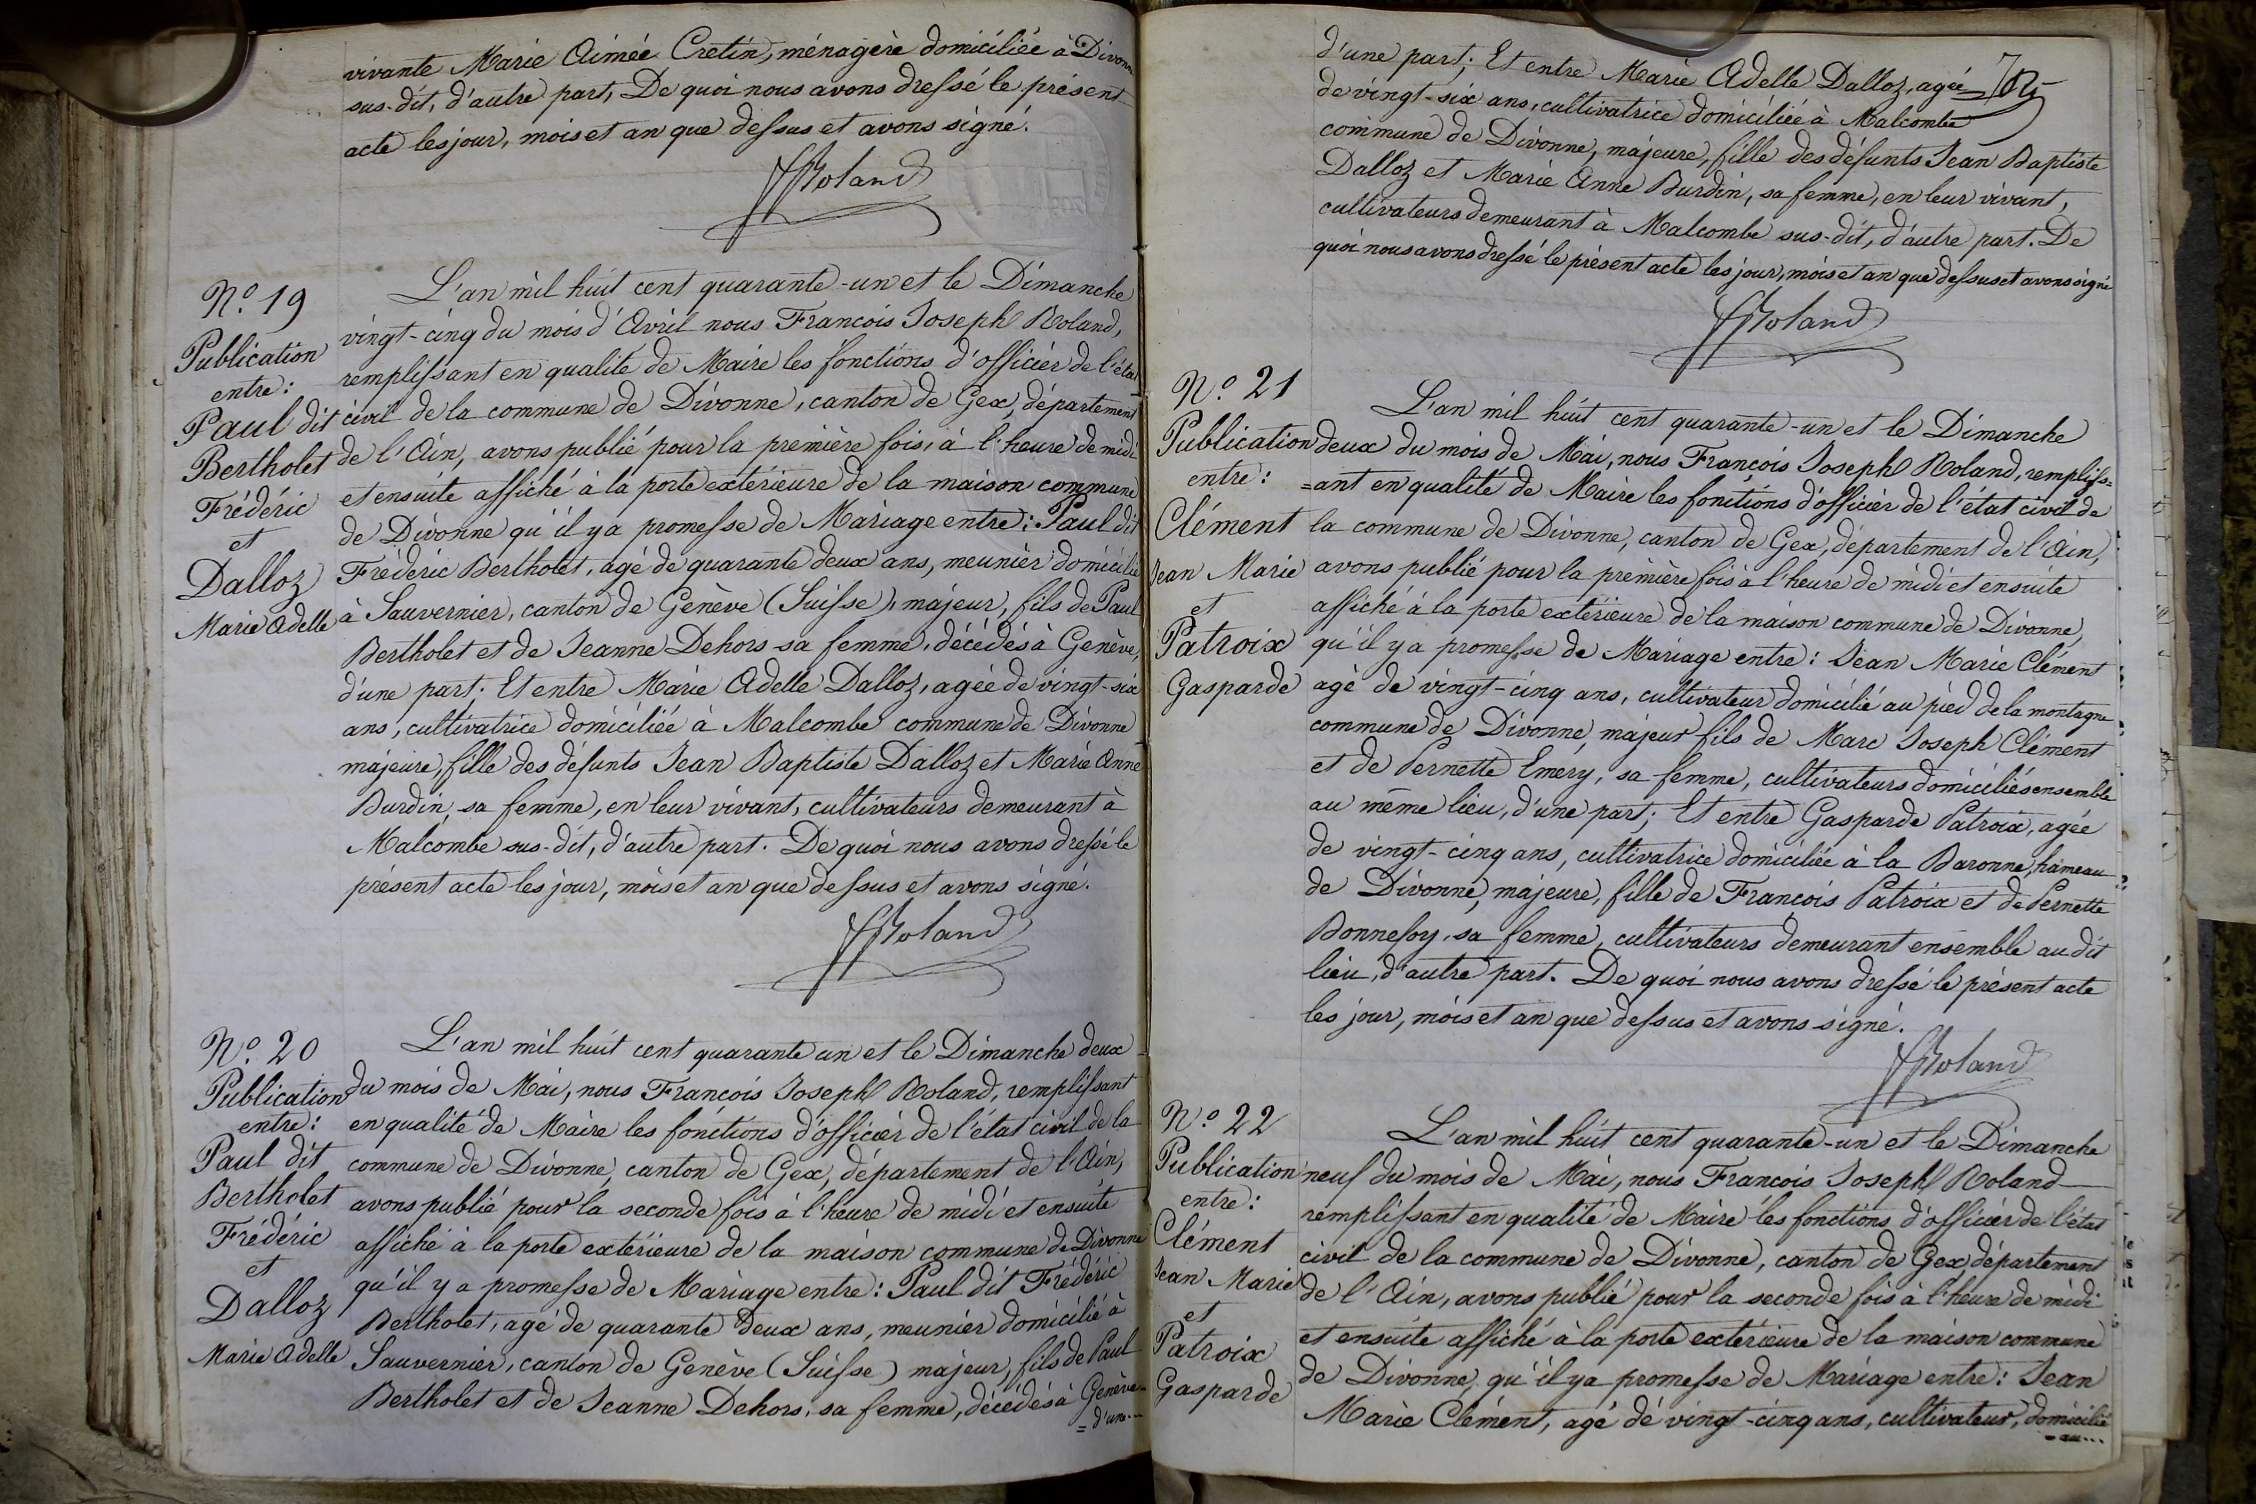 vivante Marie Aimée Cretin, ménagère domiciliée à Divonne
sus-dit, d'autre part, De quoi nous avons dressé le présent
acte les jour, mois et an que dessus et avons signé.
FJRoland
Nº. 19
Publication
entre:
Paul dit
Bertholet
Frédéric
et
Dalloz
Marie Adelle
L'an mil huit cent quarante-un et le Dimanche
vingt-cinq du mois d'Avril nous François Joseph Roland,
remplissant en qualité de Maire les fonctions d'officier de l'état
civil de la commune de Divonne, canton de Gex, département
de l'Ain, avons publié pour la première fois, à l'heure de midi
et ensuite affiché à la porte extérieure de la maison commune
de Divonne qu'il y a promesse de Mariage entre: Paul dit
Frédéric Bertholet, agé de quarante deux ans, meunier domicilié
à Sauvernier, canton de Genève (Suisse), majeur, fils de Paul
Bertholet et de Jeanne Dehors sa femme, décédés à Genève,
d'une part. Et entre Marie Adelle Dalloz, agée de vingt-six
ans, cultivatrice domiciliée à Malcombe commune de Divonne
majeure, fille des défunts Jean Baptiste Dalloz et Marie Anne
Burdin, sa femme, en leur vivant, cultivateurs demeurant à
Malcombe sus-dit, d'autre part. De quoi nous avons dressé le
présent acte les jour, mois et an que dessus et avons signé.
FJRoland
Nº. 20
Publication
entre:
Paul dit
Bertholet
Frédéric
et
Dalloz
Marie Adelle
L'an mil huit cent quarante un et le Dimanche deux
du mois de Mai, nous François Joseph Roland, remplissant
en qualité de Maire les fonctions d'officier de l'état civil de la
commune de Divonne, canton de Gex, département de l'Ain,
avons publié pour la seconde fois à l'heure de midi et ensuite
affiché à la porte extérieure de la maison commune de Divonne
qu'il y a promesse de Mariage entre: Paul dit Frédéric
Bertholet, agé de quarante deux ans, meunier domicilié à
Sauvernier, canton de Genève (Suisse) majeur, fils de Paul
Bertholet et de Jeanne Dehors, sa femme, décédés à Genève
= d'une...
d'une part; Et entre Marie Adelle Dalloz, agée
de vingt-six ans, cultivatrice domiciliée à Malcombe
commune de Divonne, majeure, fille des défunts Jean Baptiste
Dalloz et Marie Anne Burdin, sa femme, en leur vivant,
cultivateurs demeurant à Malcombe sus-dit, d'autre part. De
quoi nous avons dressé le présent acte les jour, mois et an que dessus et avons signé
FJRoland
Nº. 21
Publication
entre:
Clément
Jean Marie
et
Patroix
Gasparde
L'an mil huit cent quarante-un et le Dimanche
deux du mois de Mai, nous François Joseph Roland, rempliss=
=ant en qualité de Maire les fonctions d'officier de l'état civil de
la commune de Divonne, canton de Gex, département de l'Ain,
avons publié pour la première fois à l'heure de midi et ensuite
affiché à la porte extérieure de la maison commune de Divonne,
qu'il y a promesse de Mariage entre: Jean Marie Clément
agé de vingt-cinq ans, cultivateur domicilié au pied de la montagne
commune de Divonne, majeur fils de Marc Joseph Clément
et de Pernette Emery, sa femme, cultivateurs domiciliés ensemble
au même lieu, d'une part; Et entre Gasparde Patroix, agée
de vingt-cinq ans, cultivatrice domiciliée à la Baronne, hameau
de Divonne, majeure, fille de François Patroix et de Pernette
Bonnefoy, sa femme, cultivateurs demeurant ensemble au dit
lieu, d'autre part. De quoi nous avons dressé le présent acte
les jour, mois et an que dessus et avons signé.
FJRoland
Nº. 22
Publication
entre:
Clément
Jean Marie
et
Patroix
Gasparde
L'an mil huit cent quarante-un et le Dimanche
neuf du mois de Mai, nous François Joseph Roland
remplissant en qualité de Maire les fonctions d'officier de l'état
civil de la commune de Divonne, canton de Gex, département
de l'Ain, avons publié pour la seconde fois à l'heure de midi
et ensuite affiché à la porte extérieure de la maison commune
de Divonne, qu'il y a promesse de Mariage entre: Jean
Marie Clément, agé de vingt-cinq ans, cultivateur, domicilié
= au...